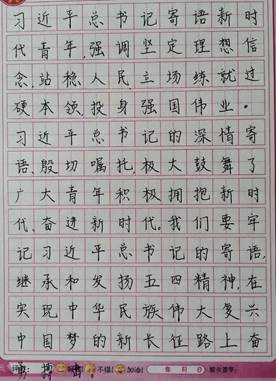 习近平总书记寄语新时
代青年,强调坚定理想信
念,站稳人民立场练就过
硬本领,投身强国伟业。
习近平总书记的深情寄
语、殷切嘱托,极大鼓舞了
广大青年积极拥抱新时
代、奋进新时代。我们要牢
记习近平总书记的寄语,
继承和发扬五四精神,在
实现中华民族伟大复兴
中国梦的新长征路上奋
勇搏击。
不错! 加油!